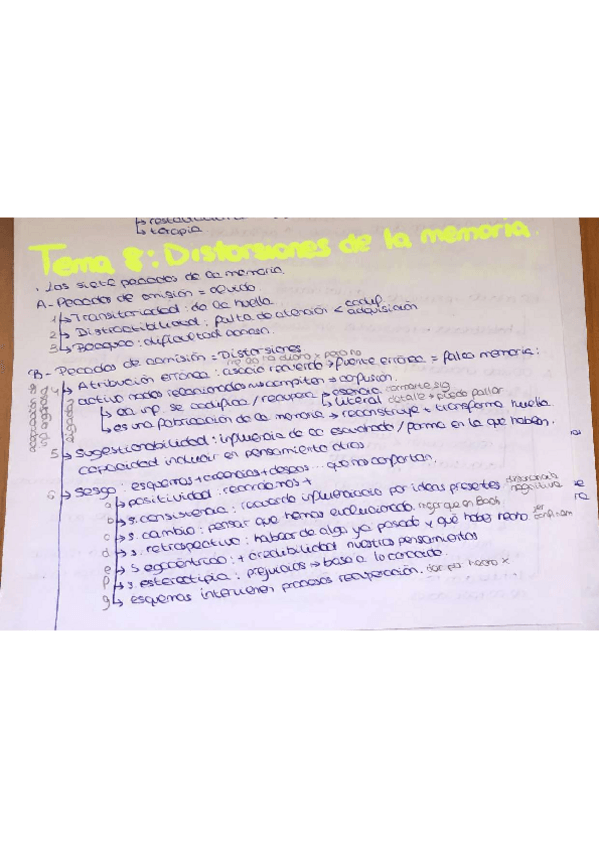 ↳ terapia
Tema 8: Distorsiones de la memoria.
. Los siete pecados de la memoria
A - Pecados de omisión = olvido.
1 ↳ Transitoriedad: de la huella.
2 ↳ Distractibilidad: falta de atención < codif. adquisición
3 ↳ Bloqueo: dificultad acceso.
B - Pecados de comisión = Distorsiones
4 ↳ Atribución errónea: asocio recuerdo → fuente errónea = falsa memoria:
activo nodos relacionados compiten = confusión.
↳ la inf. se codifica / recupera esencia
↳ literal detalle → puedo fallar
↳ es una fabricación de la memoria → reconstruye + transforma huella.
5 ↳ Sugestionabilidad: influencia de lo escuchado / forma en la que hablen.
capacidad inducir en pensamiento otros
6 ↳ Sesgo. esquemas + creencias + deseos ... que nos comportan.
a ↳ positividad: recordamos +
b ↳ s. consistencia: recuerdo influenciado por ideas presentes
c ↳ s. cambio: pensar que hemos evolucionado.
d ↳ s. retrospectivo: hablar de algo ya pasado y que habías hecho
e ↳ s egocéntrico: + credibilidad nuestros pensamientos
f ↳ s. estereotipia: prejuicios → base a lo conocido.
g ↳ esquemas intervienen procesos recuperación. dar por hecho x